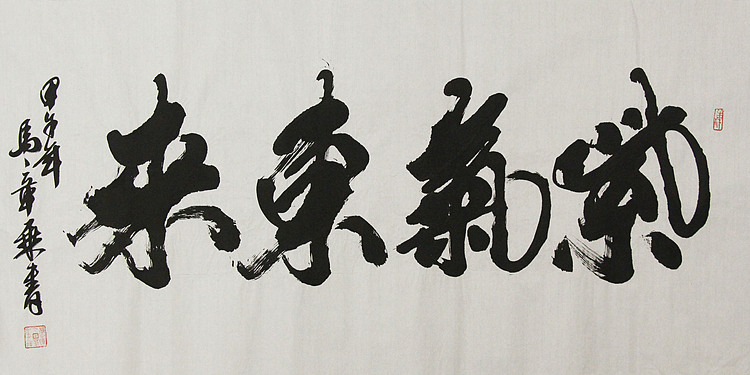 紫氣東来
甲午年
馬章乘書